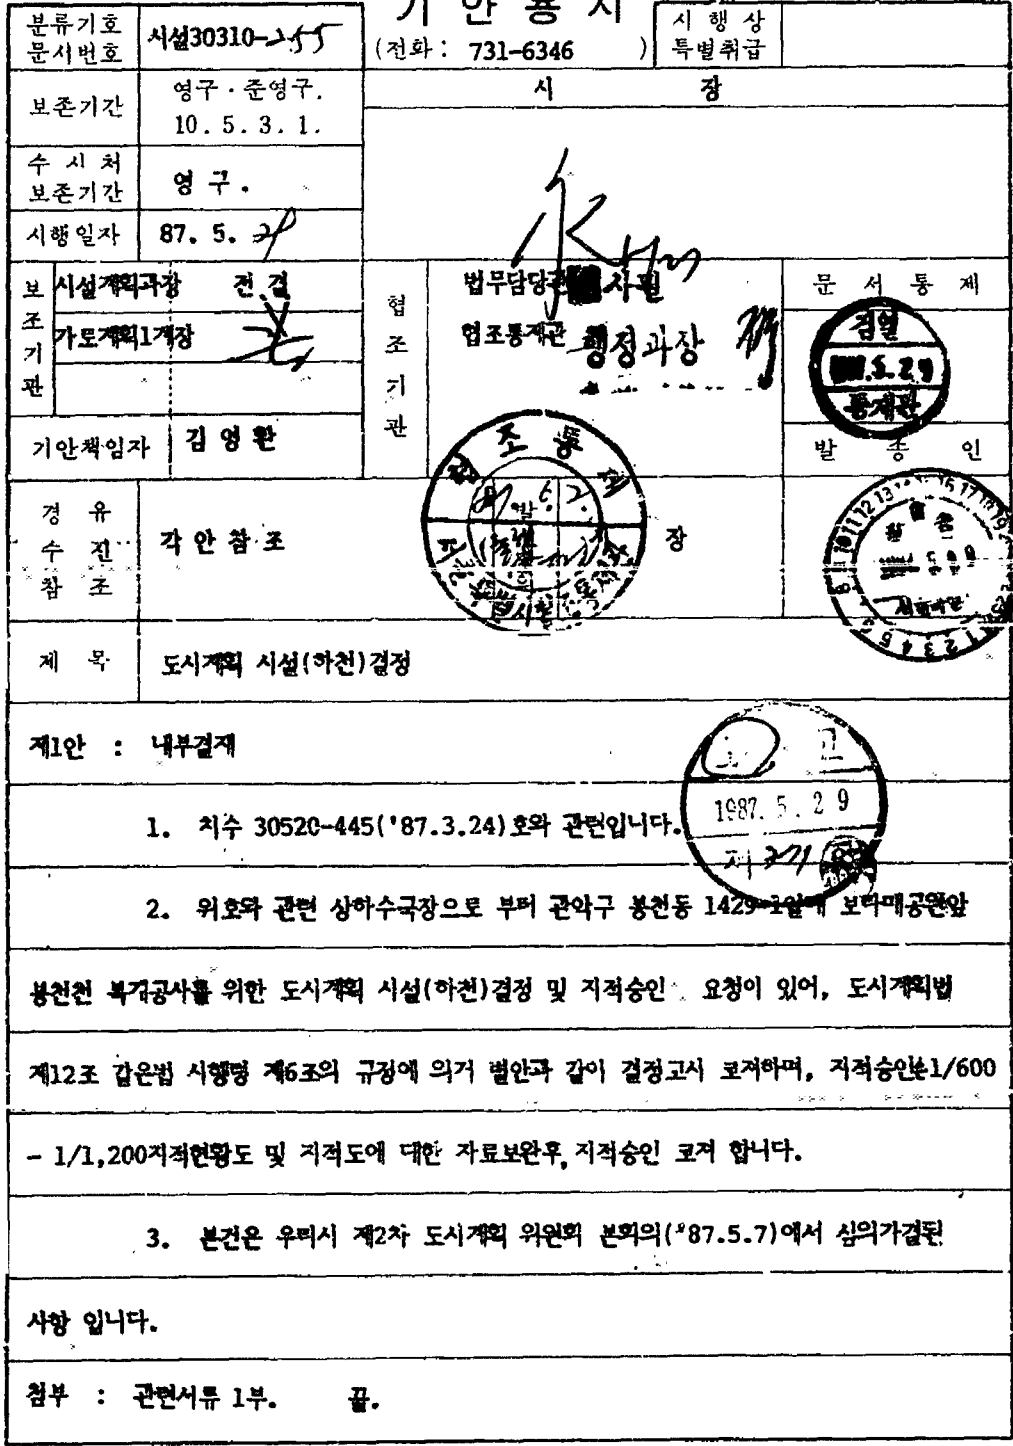 기 안 용 지
분류기호 문서번호 시설30310-255
(전화 : 731-6346 )
시 행 상 특별취급
보존기간 영구 · 준영구. 10. 5. 3. 1.
시 장
수 시 처 보존기간 영 구 .
시행일자 87. 5.
보조기관 시설계획과장 전 결
가로계획1계장
협조기관 법무담당관 사필
협조통제관 행정과장
문 서 통 제
검열
통제관
기안책임자 김 영 환
발 송 인
경 유 수 신 참 조 각 안 참 조 장
제 목 도시계획 시설(하천)결정
제1안 : 내부결재
고
1987. 5. 29
제 371
1. 치수 30520-445('87.3.24)호와 관련입니다.
2. 위호와 관련 상하수국장으로 부터 관악구 봉천동 1429-1일대 보라매공원앞
봉천천 복개공사를 위한 도시계획 시설(하천)결정 및 지적승인 요청이 있어, 도시계획법
제12조 같은법 시행령 제6조의 규정에 의거 별안과 같이 결정고시 코저하며, 지적승인은1/600
- 1/1,200지적현황도 및 지적도에 대한 자료보완후, 지적승인 코저 합니다.
3. 본건은 우리시 제2차 도시계획 위원회 본회의('87.5.7)에서 심의가결된
사항 입니다.
첨부 : 관련서류 1부. 끝.